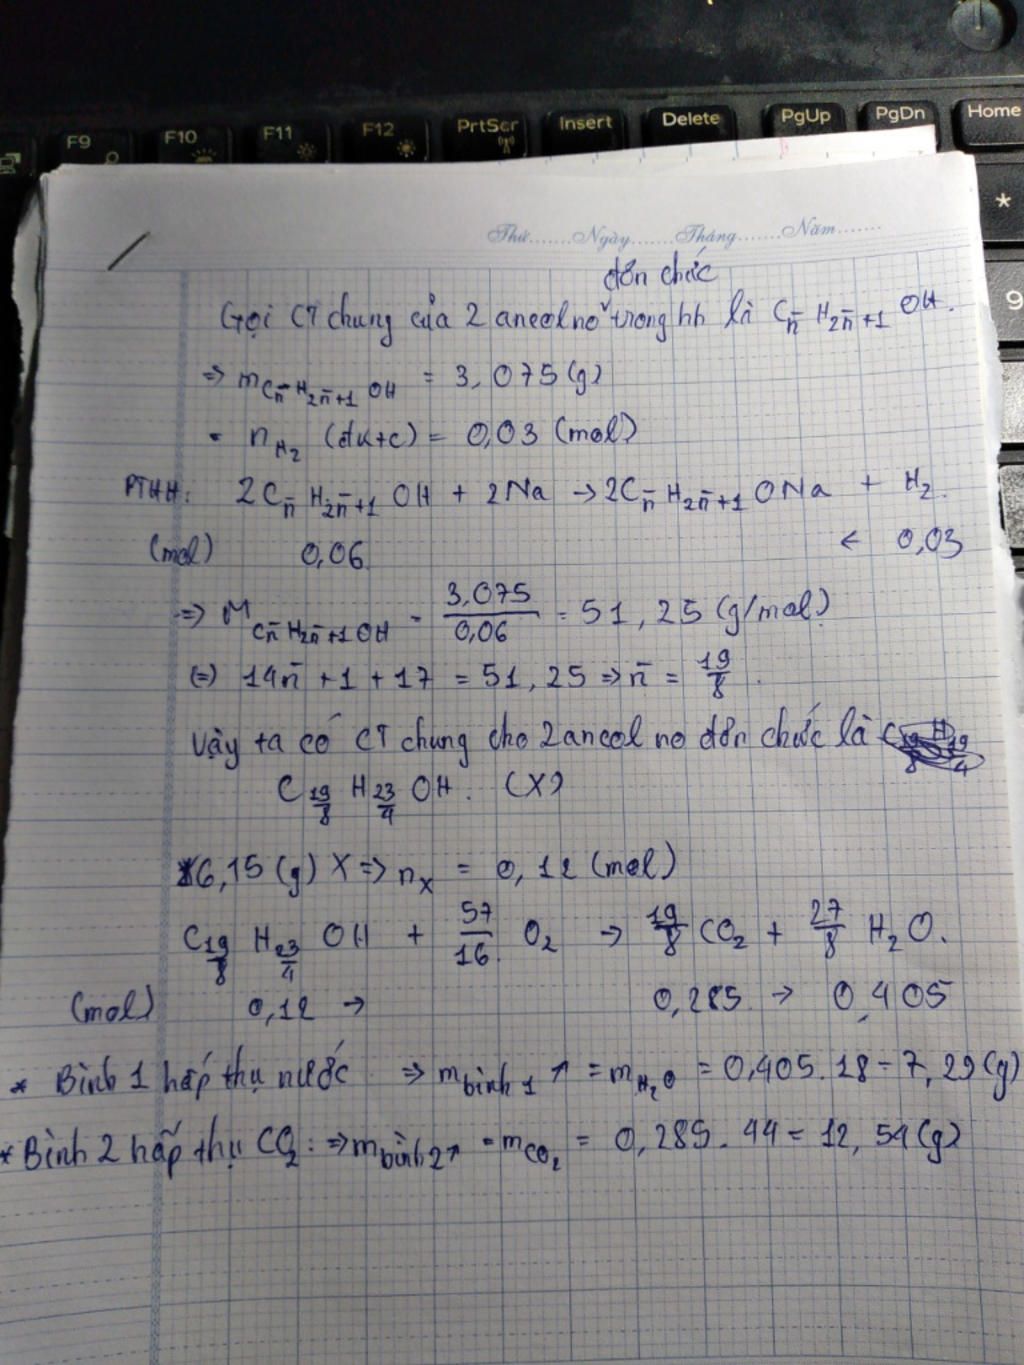 F9 F10 F11 F12 PrtScr Insert Delete PgUp PgDn Home
*
9
Thứ.......Ngày.......Tháng.......Năm.......
đơn chức
Gọi CT chung của 2 ancol no ˅ trong hh là Cn̄ H2n̄+1 OH.
=> mCn̄H2n̄+1 OH = 3,075(g)
• nH2 (đktc) = 0,03 (mol)
PTHH: 2Cn̄ H2n̄+1 OH + 2Na → 2Cn̄ H2n̄+1 ONa + H2.
(mol) 0,06 ← 0,03
=> MCn̄H2n̄+1OH = 3,075/0,06 = 51,25 (g/mol)
(=) 14n̄ + 1 + 17 = 51,25 => n̄ = 19/8.
Vậy ta có CT chung cho 2 ancol no đơn chức là
C19/8 H23/4 OH. (X)
*6,15(g) X => nX = 0,12 (mol)
C19/8 H23/4 OH + 57/16 O2 → 19/8 CO2 + 27/8 H2O.
(mol) 0,12 → 0,285 → 0,405
* Bình 1 hấp thụ nước => mbình1 ↑ = mH2O = 0,405.18 = 7,29(g)
* Bình 2 hấp thụ CO2: => mbình2↑ = mCO2 = 0,285.44 = 12,54(g)